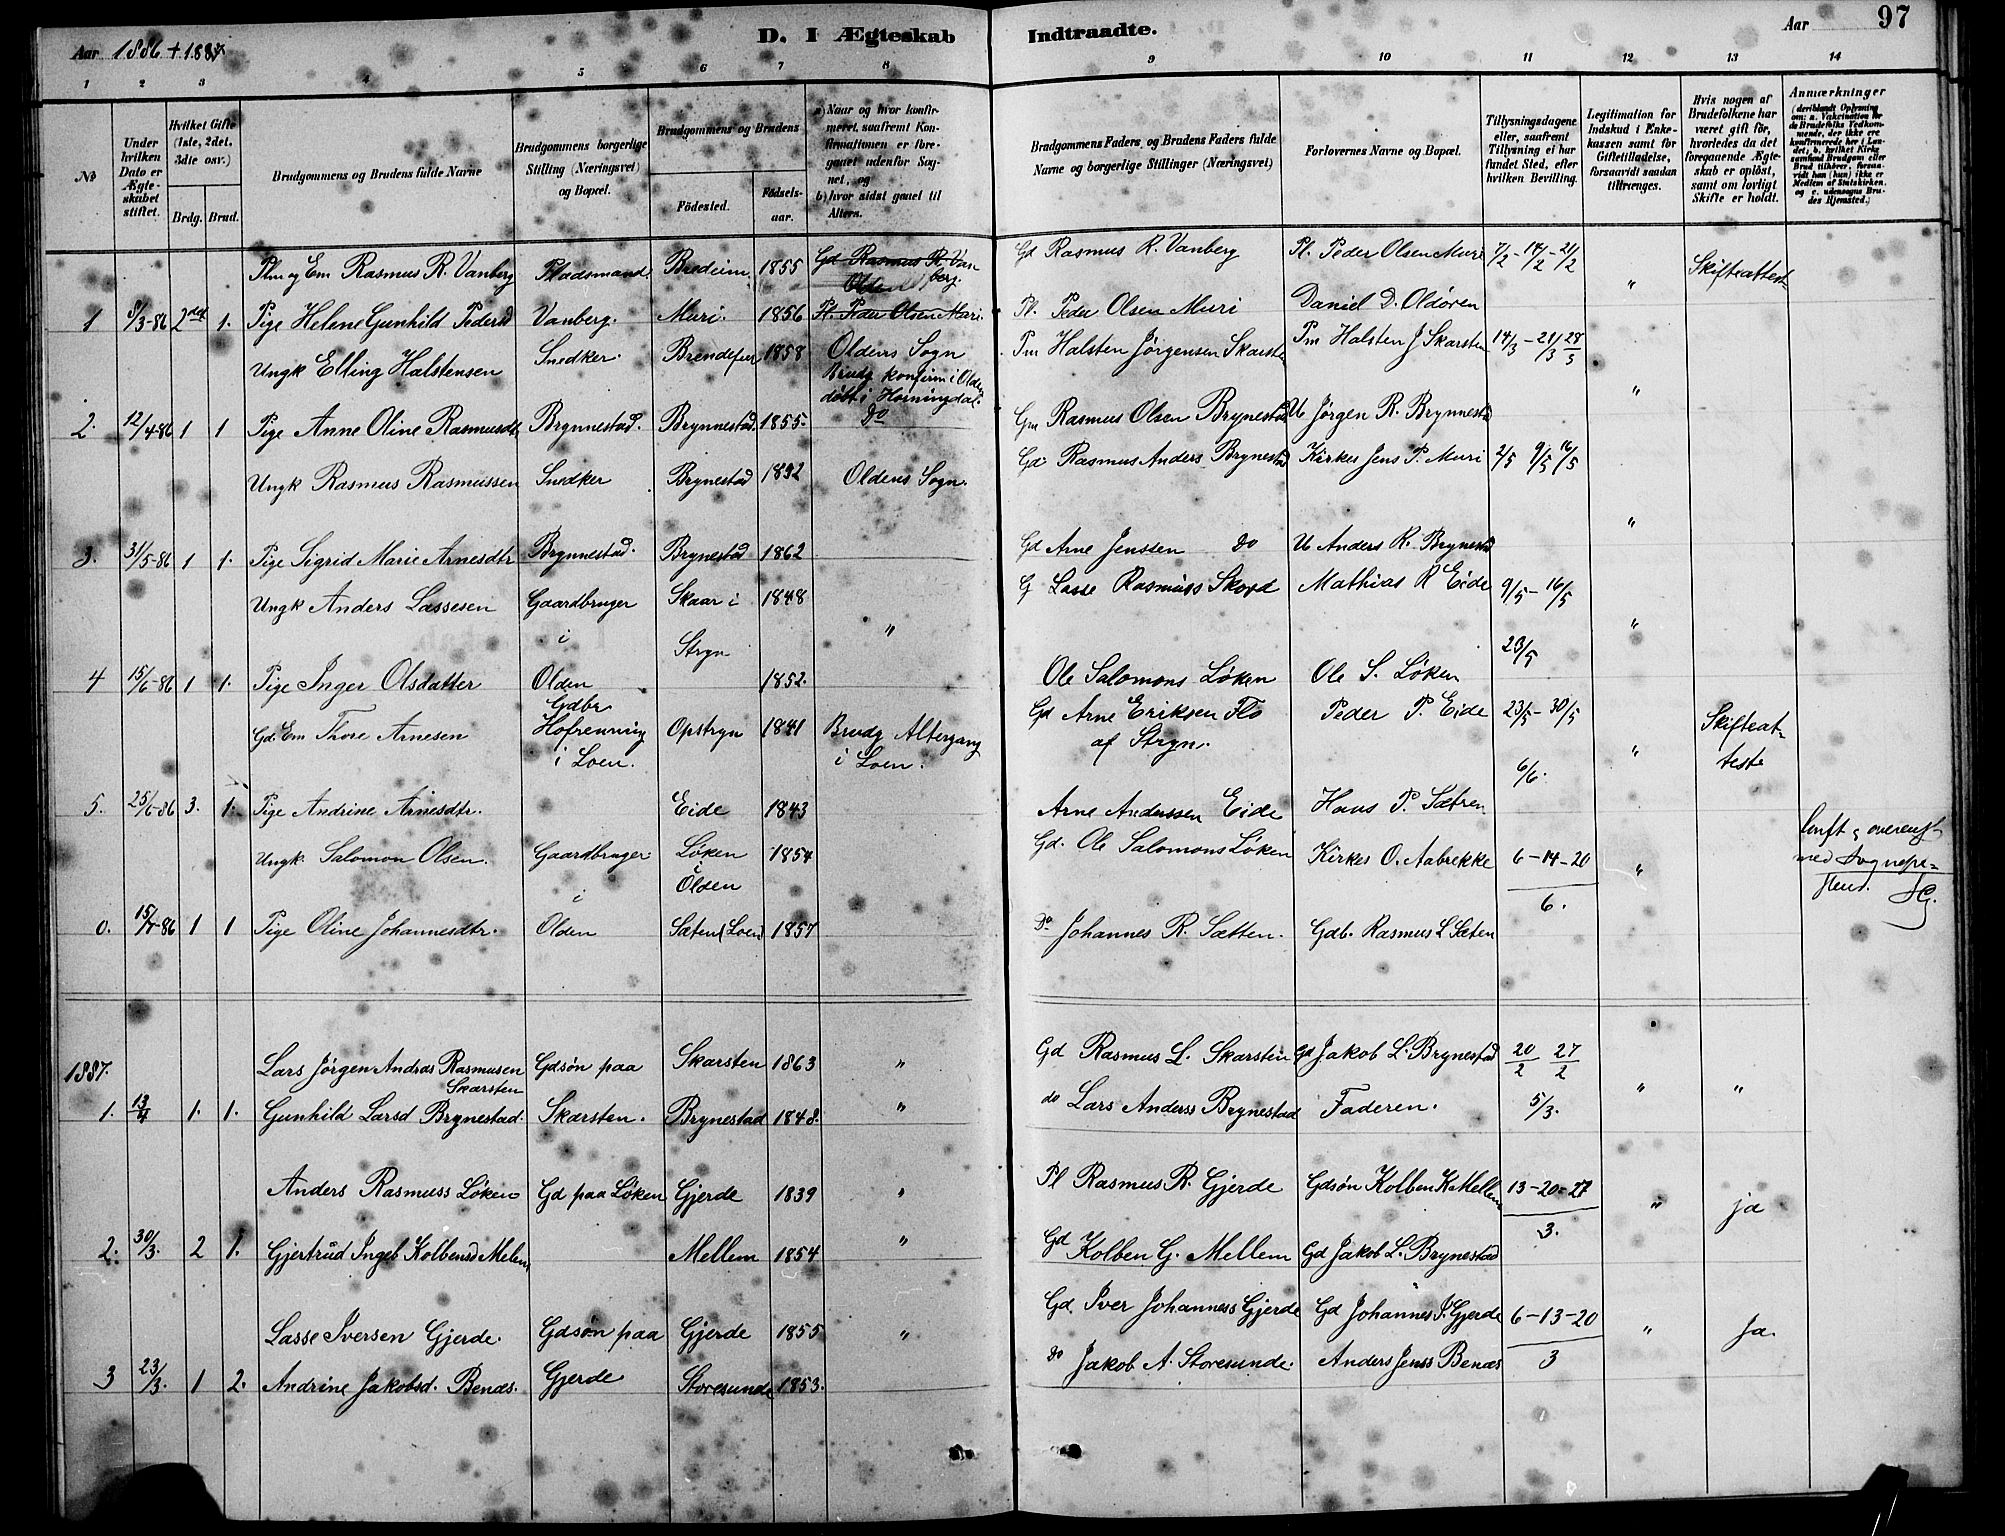 Aar 1886 + 1887
D. I Ægteskab Indtraadte.
Aar 97
1 2 3 4 5 6 7 8 9 10 11 12 13 14
No
Under hvilken Dato er Ægteskabet stiftet.
Hvilket Gifte (1ste, 2det, 3die osv.)
Brdg. Brud.
Brudgommens og Brudens fulde Navne
Brudgommens borgerlige Stilling (Næringsvei) og Bopæl.
Brudgommens og Brudens
Fødested. Fødselsaar.
a) Naar og hvor konfirmeret, saafremt Konfirmationen er foregaaet udenfor Sognet, og
b) hvor sidst gaaet til Alters.
Brudgommens Faders, og Brudens Faders fulde Navne og borgerlige Stillinger (Næringsvei)
Forlovernes Navne og Bopæl.
Tillysningsdagene eller, saafremt Tillysning ei har fundet Sted, efter hvilken Bevilling.
Legitimation for Indskud i Enkekassen samt for Giftetilladelse, forsaavidt saadan tiltrænges.
Hvis nogen af Brudefolkene har været gift før, hvorledes da det foregaaende Ægteskab er opløst, samt om lovligt Skifte er holdt.
Anmærkninger (deriblandt Oplysning om: a. Vakcination for de Brudefolks Vedkommende, der ikke ere konfirmerede her i Landet; b. hvilket Kirkesamfund Brudgom eller Brud tilhører, forsaavidt han (hun) ikke er Medlem af Statskirken, og c. udensogns Brudes Hjemsted.)
Plm og Em Rasmus R. Vanberg Pladsmand. Bredeim 1855 Gd Rasmus R. Vanberg Olden Gd Rasmus R. Vanberg Pl. Peder Olsen Muri 7/2 - 14/2 - 21/2 " Skifteattest
1 8/3-86 2det 1. Pige Helene Gunhild Pedersd Vanberg. Muri. 1856 Pl. Peder Olsen Muri. Pl. Peder Olsen Muri Daniel D. Oldøren
Ungk Elling Halstensen Snedker. 1858 Oldens Sogn Brudg konfirm i Olden døbt i Horningdal. Pm Halsten Jørgensen Skarsten Pm Halsten J Skarsten 14/3 - 21/3 28/3 "
2. 12/4 86 1 1 Pige Anne Oline Rasmusdt Brynnestad. Brynnestad. 1855. do Gm Rasmus Olsen Brynestad U Jørgen R. Brynnestad
Ungk Rasmus Rasmussen Snedker Brynestad Oldens Sogn. Gd. Rasmus Anders Brynestad Kirkes Jens P. Muri 2/5 9/5 16/5 "
3. 31/5-86 1 1. Pige Sigrid Marie Arnesdtr Brynnestad. Brynestad 1862 Gd Arne Jenssen do U Anders R. Brynestad
Ungk Anders Lassesen Gaardbruger i Skaar i Stryn 1848 " G Lasse Rasmuss Mathias R Eide 9/5 - 16/5 23/5 "
4 15/6-86 1 1. Pige Inger Olsdatter Olden 1852. Ole Salomons Løken Ole S. Løken
Gd. Em Thore Arnesen Gdbr Hofrenning i Loen. Opstryn 1841 Brudg Altergang i Loen. Gd Arne Eriksen Flo af Stryn. Peder P. Eide 23/5 - 30/5 6/6. " Skifteatteste
5. 25/6-86 3. 1. Pige Andrine Arnesdtr. Eide 1843 Arne Anderssen Eide Hans P. Sætren
Ungk. Salomon Olsen. Gaardbruger i Løken Olden 1854 Gd. Ole Salomons Løken Kirkes O. Aabrekke 6-14-20 6. " med
15/7-86 1 1 Pige Oline Johannesdtr. Olden Sæten (Loen) 1857 do Johannes R. Sætten. Gdb. Rasmus L Sæten
1887.
Lars Jørgen Andras Rasmusen Skarsten Gdsøn paa Skarsten 1863 " Gd Rasmus L. Skarsten Gd Jakob L. Brynestad 20/2 27/2 " "
1. 13/4 1. 1. Gunhild Larsd Brynestad. Skarsten. Brynestad 1848. " do Lars Anderss Brynestad Faderen. 5/3.
Anders Rasmuss Løken Gd paa Løken Gjerde 1839 " Pl Rasmus R. Gjerde Gdsøn Kolben K. Mellem 13-20-27 3. " ja
2. 30/3. 2 1. Gjertrud Ingeb Kolbensd Melem Mellem 1854 " Gd Kolben G. Mellem Gd Jakob L. Brynestad
Lasse Iversen Gjerde. Gdsøn paa Gjerde 1855 " Gd. Iver Johanness Gjerde Gd Johannes I. Gjerde 6-13-20 3 " Ja.
3 23/3. 1 2. Andrine Jakobsd. Benæs. Gjerde Storesunde 1853. do Jakob A. Storesunde. Anders Jenss Benæs